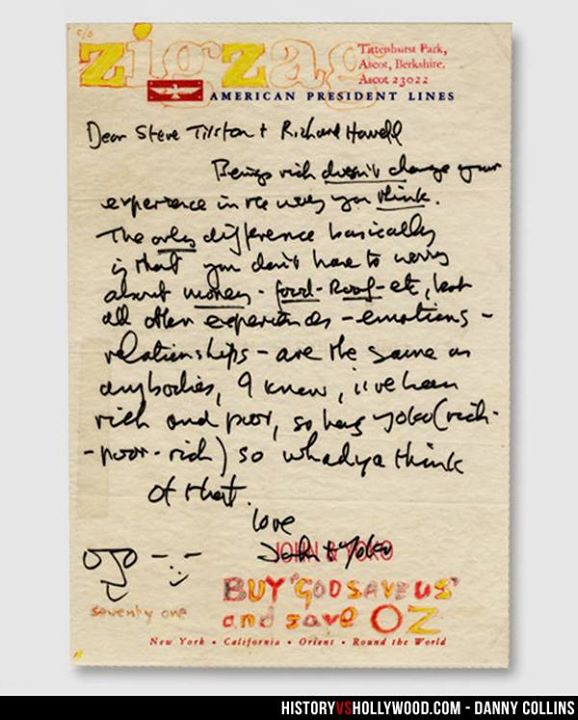 c/o
zigzag
Tittenhurst Park,
Ascot, Berkshire.
Ascot 23022
AMERICAN PRESIDENT LINES
Dear Steve Tilston + Richard Howell
Being rich doesn't change your
experience in the way you think.
The only difference basically
is that you don't have to worry
about money - food - Roof - etc, but
all other experiences - emotions -
relationships - are the same as
anybodies, I know, i've been
rich and poor, so has Yoko (rich -
- poor - rich) so whadya think
of that.
love
John + Yoko
JOHN & YOKO
BUY 'GOD SAVE US'
and save OZ
seventy one
New York • California • Orient • Round the World
HISTORYVSHOLLYWOOD.COM - DANNY COLLINS